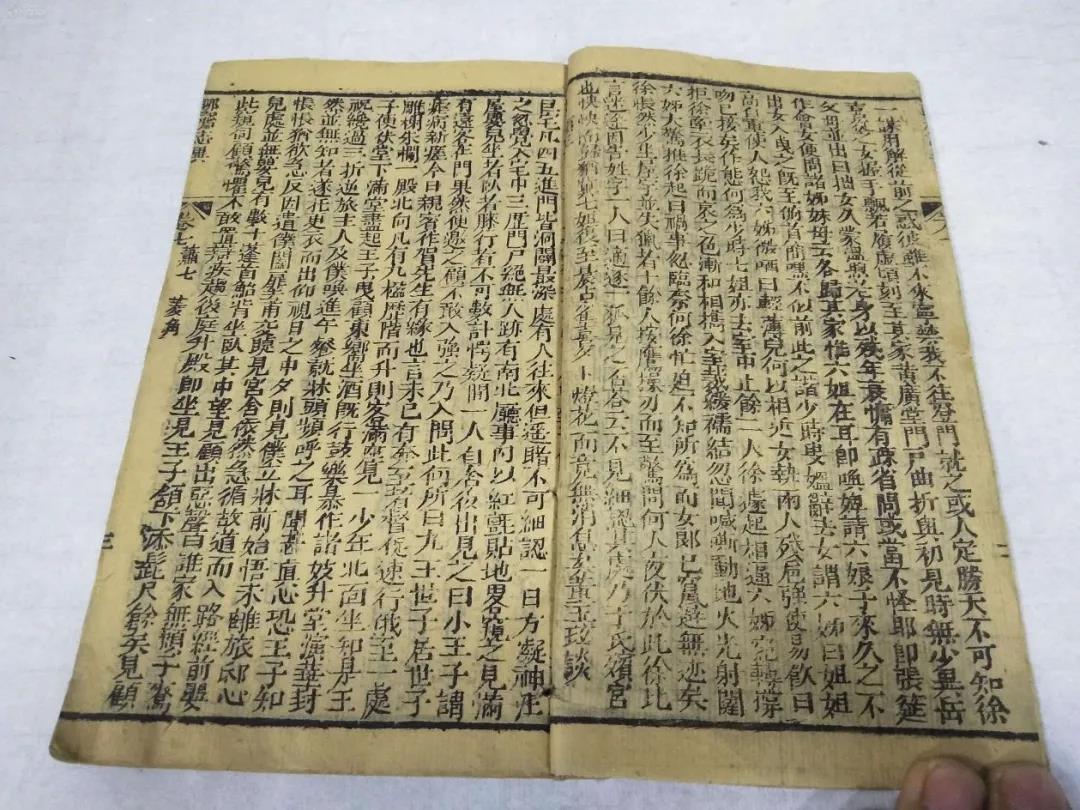 用解從前之說彼雖不來寧禁我不往登門就之或人定勝天不可知徐
喜從之女握手飄若履虛頃刻至其家黃廣堂門戶曲折與初見時無少異岳
父母並出曰拙女久蒙溫煦老身以殘年衰慵有疎省問或當不怪耶即張筵
作會女便問諸姊妹母云各歸其家惟六姐在耳即喚婢請六娘子來久之不
出女入曳之既至俯首簡嘿不似前此之諧少時叟媼辭去女謂六姊曰姐姐
高自重使人怨我六姊微哂曰輕薄兒何以相近女執兩人殘卮強使易飲曰
吻已接矣作態何為少時七姐亦去室中止餘二人徐遽起相逼六姊宛轉撐
拒徐牽衣長跪而哀之色漸和相攜入室裁緩襦結忽聞喊嘶動地火光射闥
六姊大驚推徐起曰禍事忽臨奈何徐忙迫不知所為而女郎已竄避無迹矣
徐悵然少坐屋宇並失獵者十餘人按鷹操刃而至驚問何人夜伏於此徐托
言迷途因告姓字一人曰適逐一狐見之否答云不見細認其處乃于氏殯宮
也怏怏而歸猶冀七姐復至晨占雀喜夕卜燈花而竟無消息矣董玉玹談
巨宅凡四五進門皆洞闢最深處有人往來但遙睹不可細認一日方凝神注
之忽覺入宅中三歷門戶絕無人跡有南北廳事內以紅氈貼地畧窺之見滿
屋嬰兒坐者臥者膝行者不可數計愕疑間一人自舍後出見之曰小王子謂
有遠客在門果然便邀之顧不敢入強之乃入問此何所曰九王世子居世子
瘧病新瘥今日親賓作賀先生有緣也言未已有奔至者督促速行俄至一處
雕榭朱欄一殿北向凡有九楹歷階而升則客滿座見一少年北面坐知是王
子便伏堂下滿堂盡起王子曳顧東鄉坐酒既行鼓樂暴作諸妓升堂演華封
祝纔過三折逆旅主人及僕喚進午餐就牀頭頻呼之耳聞甚真心恐王子知
然並無知者遂托更衣而出仰視日之中夕則見僕立牀前始悟未離旅邸心
悵悵猶欲急反因遣僕闔扉去甫交睫見宮舍依然急循故道而入路經前嬰
兒處並無嬰兒有數十蓬首鮐背坐臥其中望見顧出惡聲曰誰家無賴子來
此窺伺顧驚懼不敢置辯疾趨後庭升殿即坐見王子頷下添髭尺餘矣見顧
聊齋志異 卷七 蕭七 菱角 三